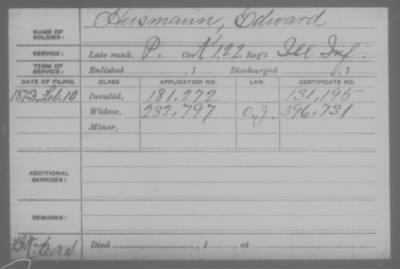 Husmann, Edward
NAME OF SOLDIER:
SERVICE: Late rank, P. Co. K, 122 Reg't Ill. Inf.
TERM OF SERVICE: Enlisted , 1 Discharged , 1
DATE OF FILING. CLASS. APPLICATION NO. LAW. CERTIFICATE NO.
1873, Feb. 10 Invalid, 181,272 131,195
Widow, 232,797 O.J. 596,731
Minor,
ADDITIONAL SERVICES:
REMARKS:
Died , 1 , at